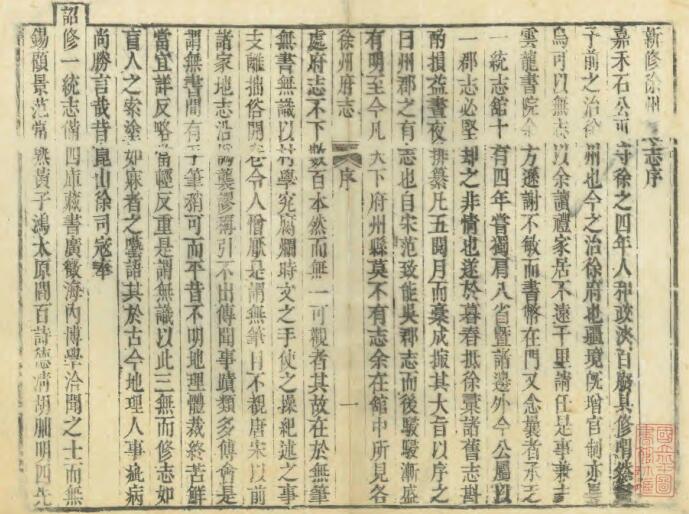 新修徐州志序
嘉禾石公守徐之四年人和政浹百廢具修謂
子前之治徐州也今之治徐府也疆境旣增官制亦
烏可以無志以余讀禮家居不遠千里請任是事兼主
雲龍書院余方遜謝不敏而書幣在門又念曩者承乏
一統志館十有四年嘗獨肩八省暨諸邊外今公屬以
一郡志必堅却之非情也遂於暮春抵徐彙諸舊志斟
酌損益晝夜排纂凡五閱月而稾成撮其大旨以序之
曰州郡之有志也自宋范致能吳郡志而後駸駸漸盛
有明至今凡天下府州縣莫不有志余在館中所見各
徐州府志 序 一
處府志不下數百本然而無一可觀者其故在於無筆
無書無識以村學究腐爛時文之手使之操紀述之事
支離拙俗開卷令人憎厭是謂無筆目不覩唐宋以前
諸家地志沿譌襲謬稱引不出傳聞事蹟類多傅會是
謂無書間有手筆稍可而平昔不明地理體裁終苦鮮
當宜詳反略當輕反重是謂無識以此三無而修志如
盲人之索塗如麻者之囈語其於古今地理人事疵病
尚勝言哉昔崑山徐司寇奉
詔修一統志備四庫藏書廣徵海內博學洽聞之士而無
錫顧景范常熟黃子鴻太原閻百詩德淸胡朏明四先